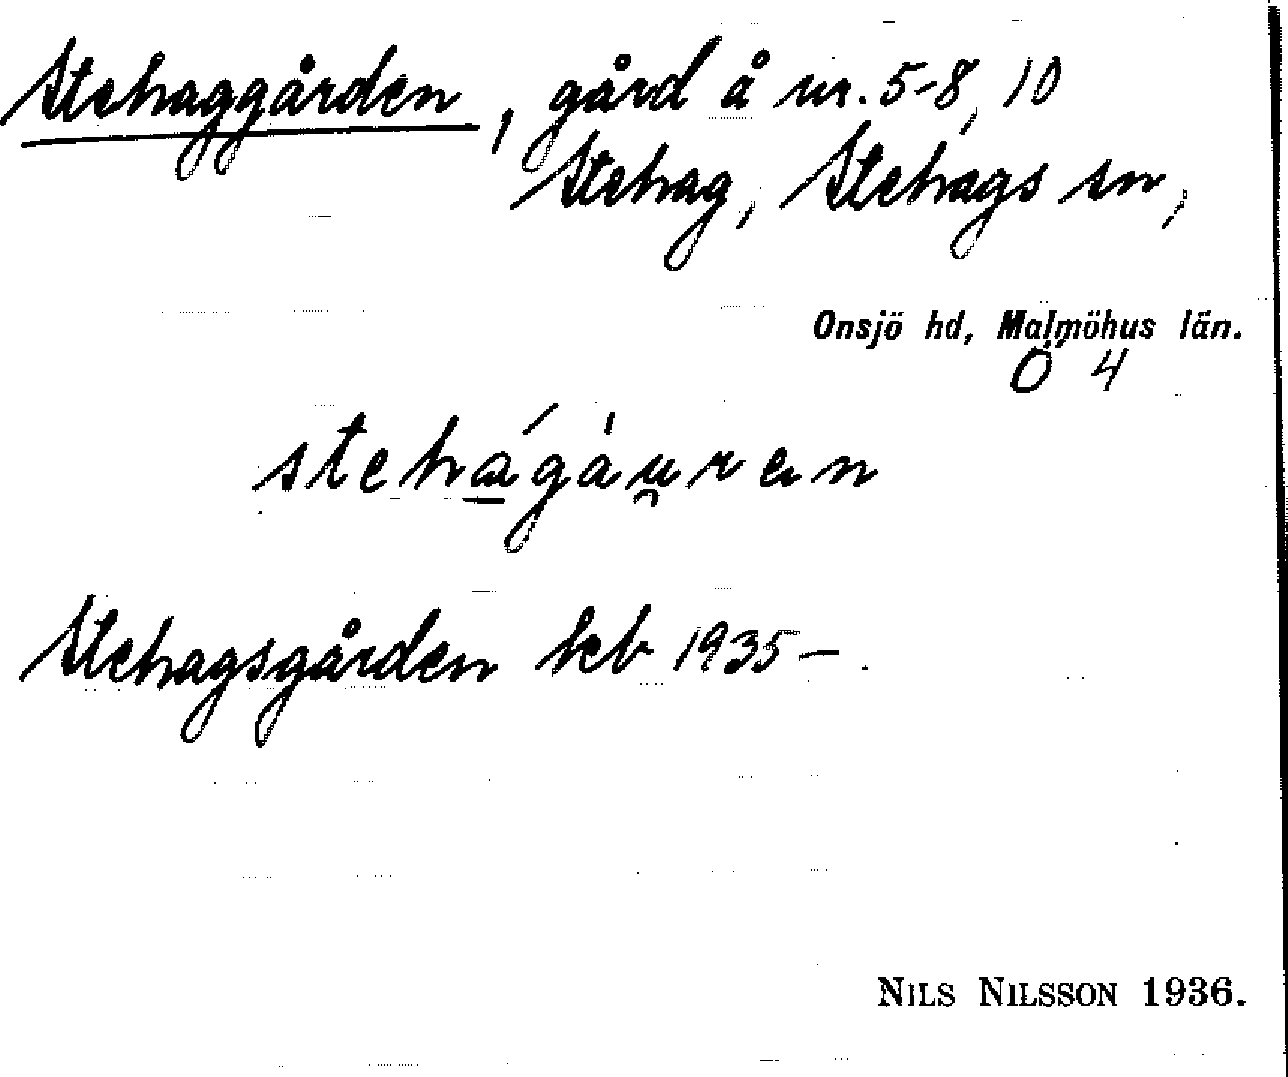 Stehaggården, gård å nr. 5-8, 10
Stehag, Stehags sn,
Onsjö hd, Malmöhus län.
Ö 4
Stehagsgården keb 1935–.
NILS NILSSON 1936.